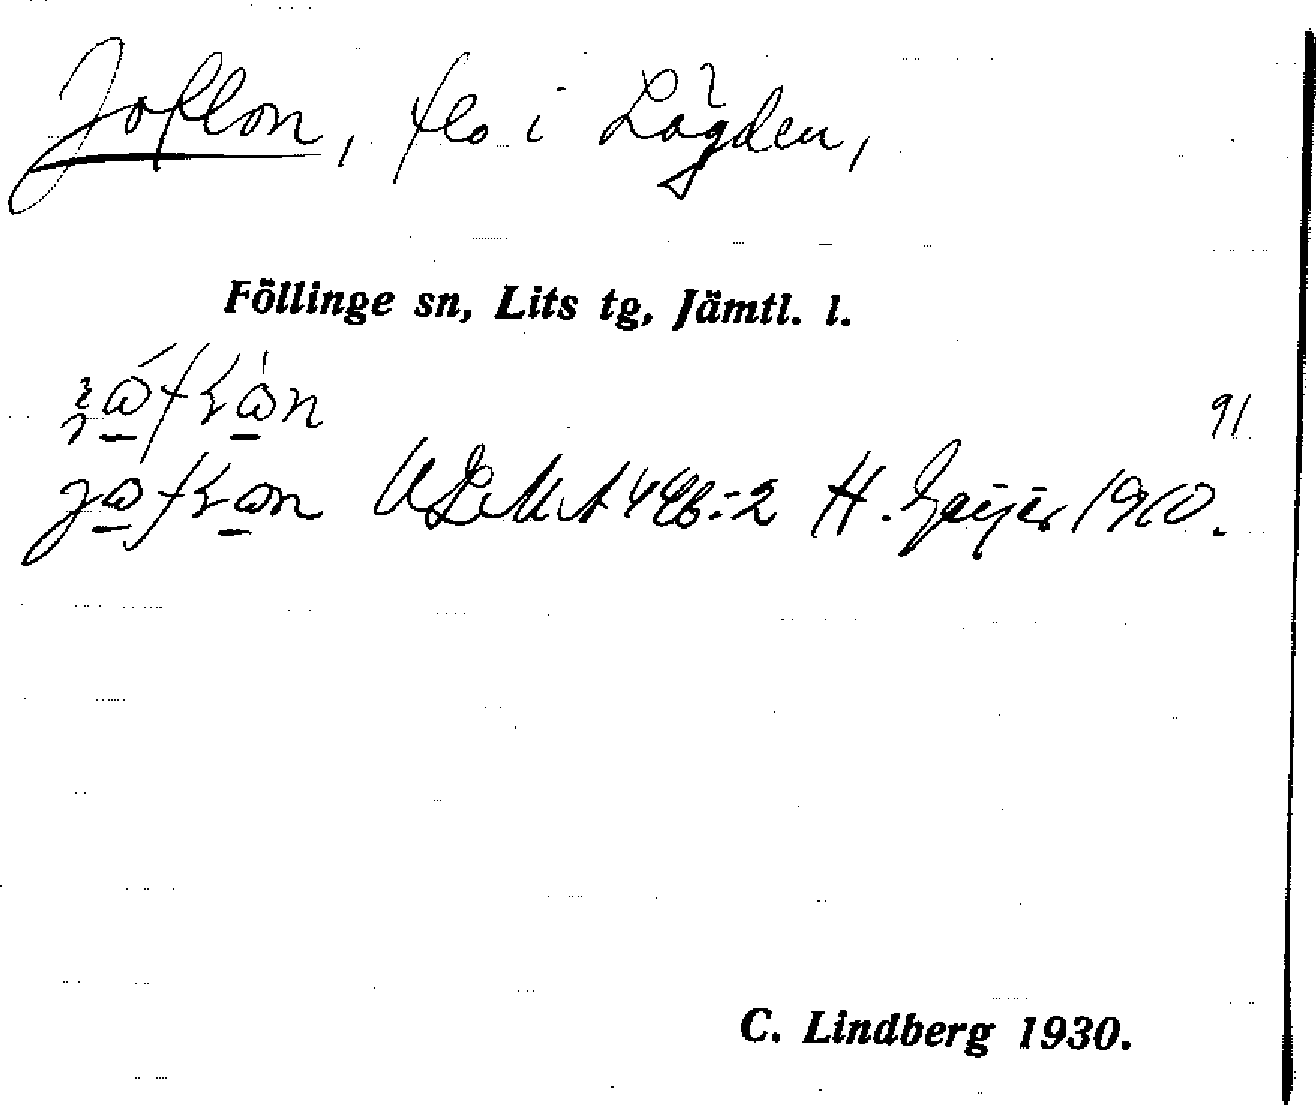 Joflon, flo i Lögden,
Föllinge sn, Lits tg, Jämtl. l.
91.
ULMA 446:2 H. Geijer 1910.
C. Lindberg 1930.